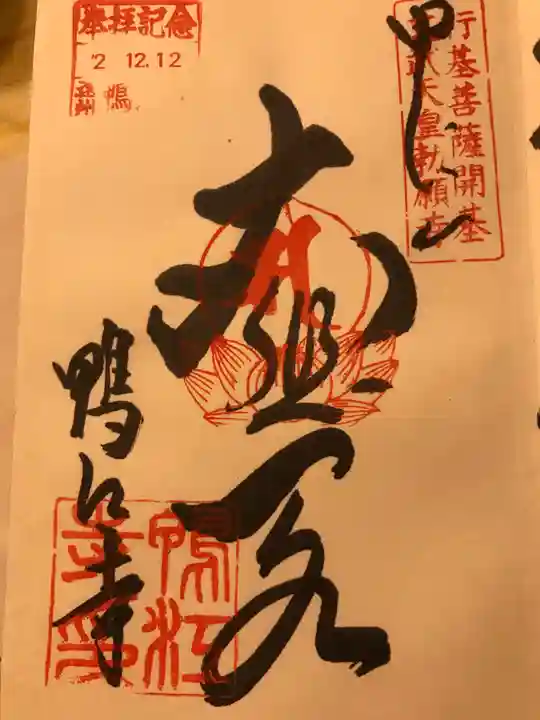 行基菩薩開基
聖武天皇勅願寺
参拝記念
2 12.12
遠州 鴨
大悲閣
鴨江寺
鴨江
寺印